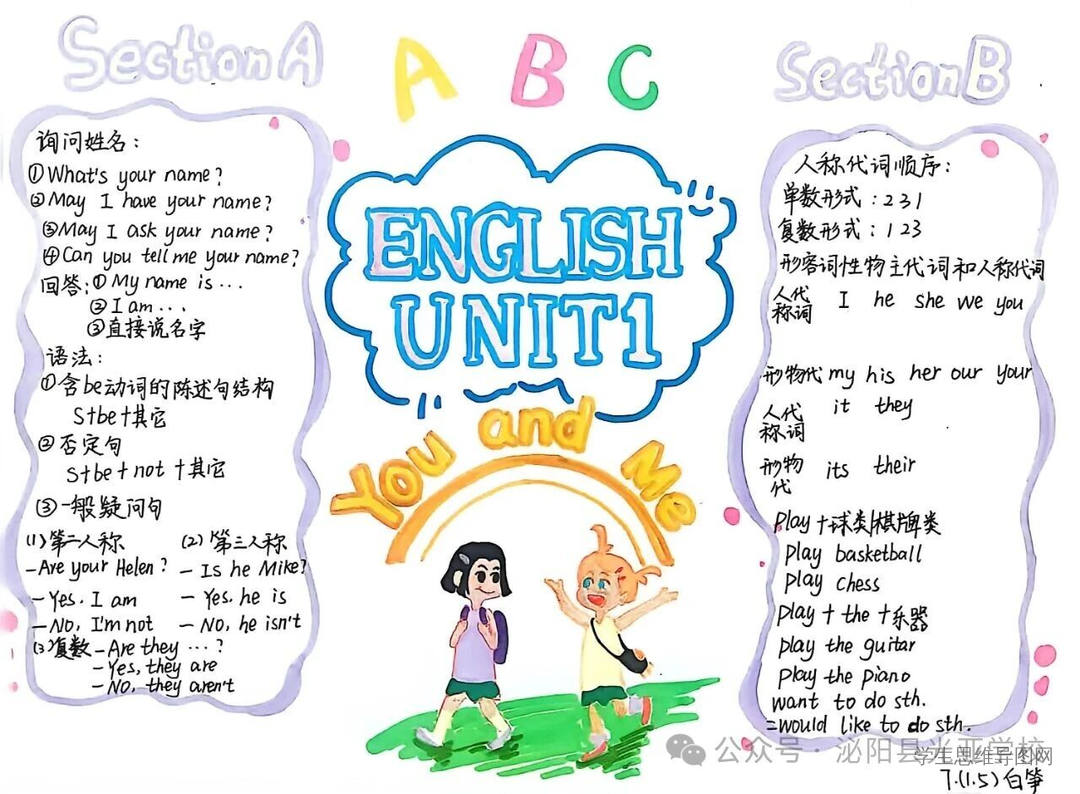 Section A
询问姓名：
①What's your name?
②May I have your name?
③May I ask your name?
④Can you tell me your name?
回答：①My name is ...
②I am ...
③直接说名字
语法：
①含be动词的陈述句结构
S+be+其它
②否定句
S+be+not+其它
③一般疑问句
(1)第二人称 (2)第三人称
-Are your Helen? - Is he Mike?
- Yes. I am - Yes. he is
- No, I'm not - NO, he isn't
(3)复数 -Are they ...?
-Yes, they are
- NO, they aren't
A B C
ENGLISH
UNIT1
You and Me
Section B
人称代词顺序：
单数形式：231
复数形式：123
形容词性物主代词和人称代词
人代
称词 I he she we you
形物代 my his her our your
人代
称词 it they
形物
代 its their
play+球类/棋牌类
play basketball
play chess
play+the+乐器
play the guitar
play the piano
want to do sth.
=would like to do sth.
公众号·泌阳县光亚学校
学生思维导图网
7.(1.5)白笋